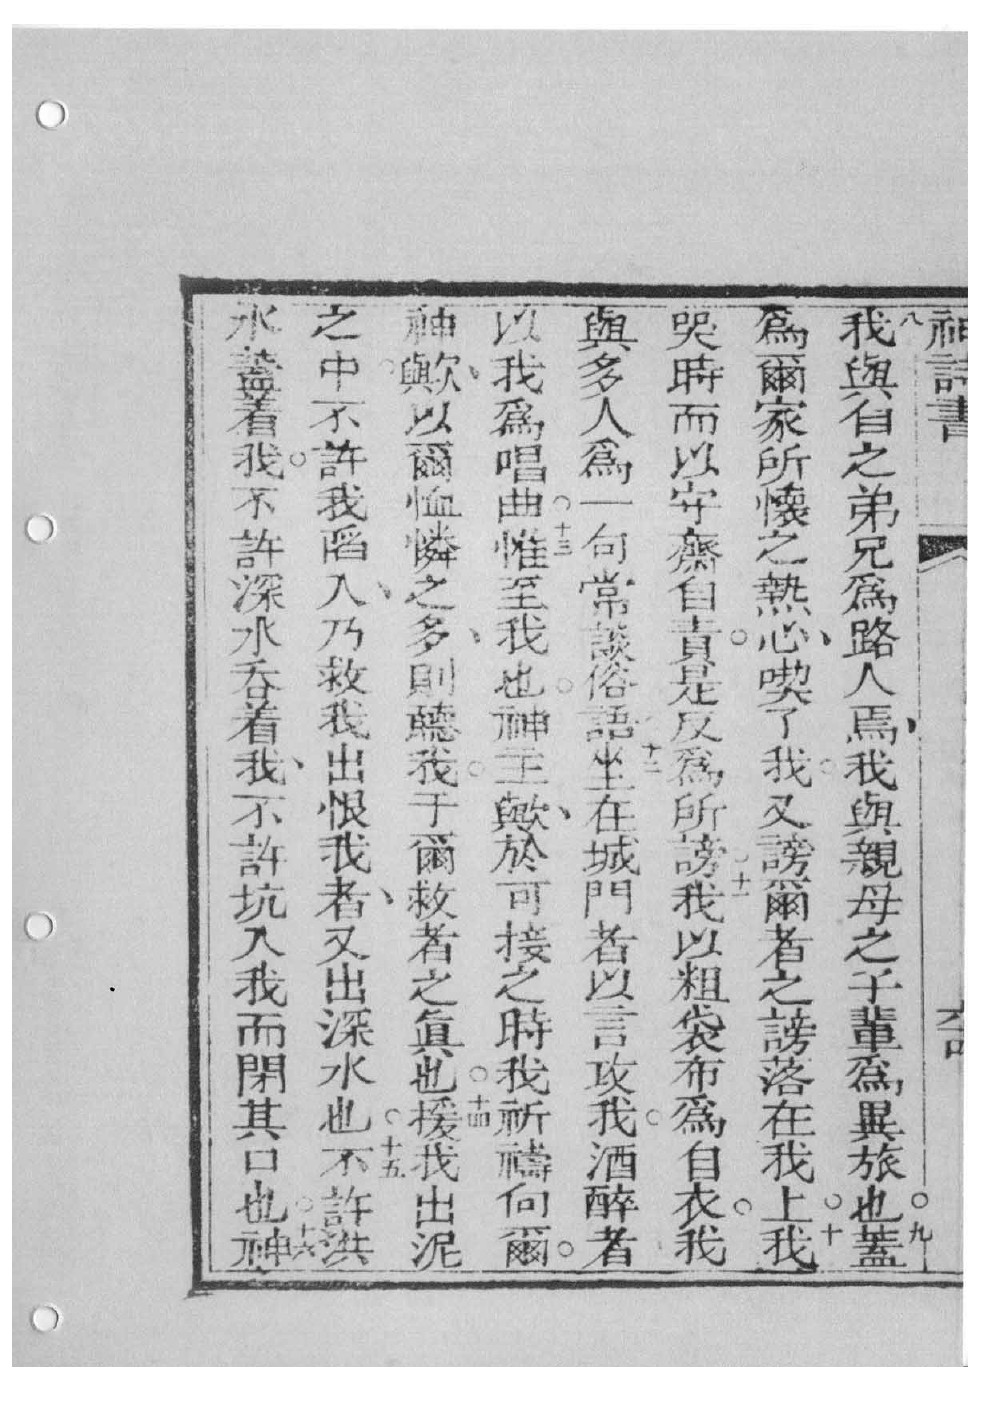 神詩書
八我與自之弟兄爲路人焉、我與親母之子輩爲異旅也。九蓋
爲爾家所懷之熱心、喫了我。又謗爾者之謗落在我上。十我
哭時而以守齋自責。是反爲所謗。十一我以粗袋布爲自衣。我
與多人爲一句常談俗語。十二坐在城門者以言攻我。酒醉者
以我爲唱曲。十三惟至我也。神主歟、於可接之時我祈禱向爾。
神歟、以爾恤憐之多、則聽我。于爾救者之眞也。十四援我出泥
之中。不許我陷入、乃救我出恨我者、又出深水也。十五不許洪
水蓋着我。不許深水吞着我、不許坑入我而閉其口也。十六神